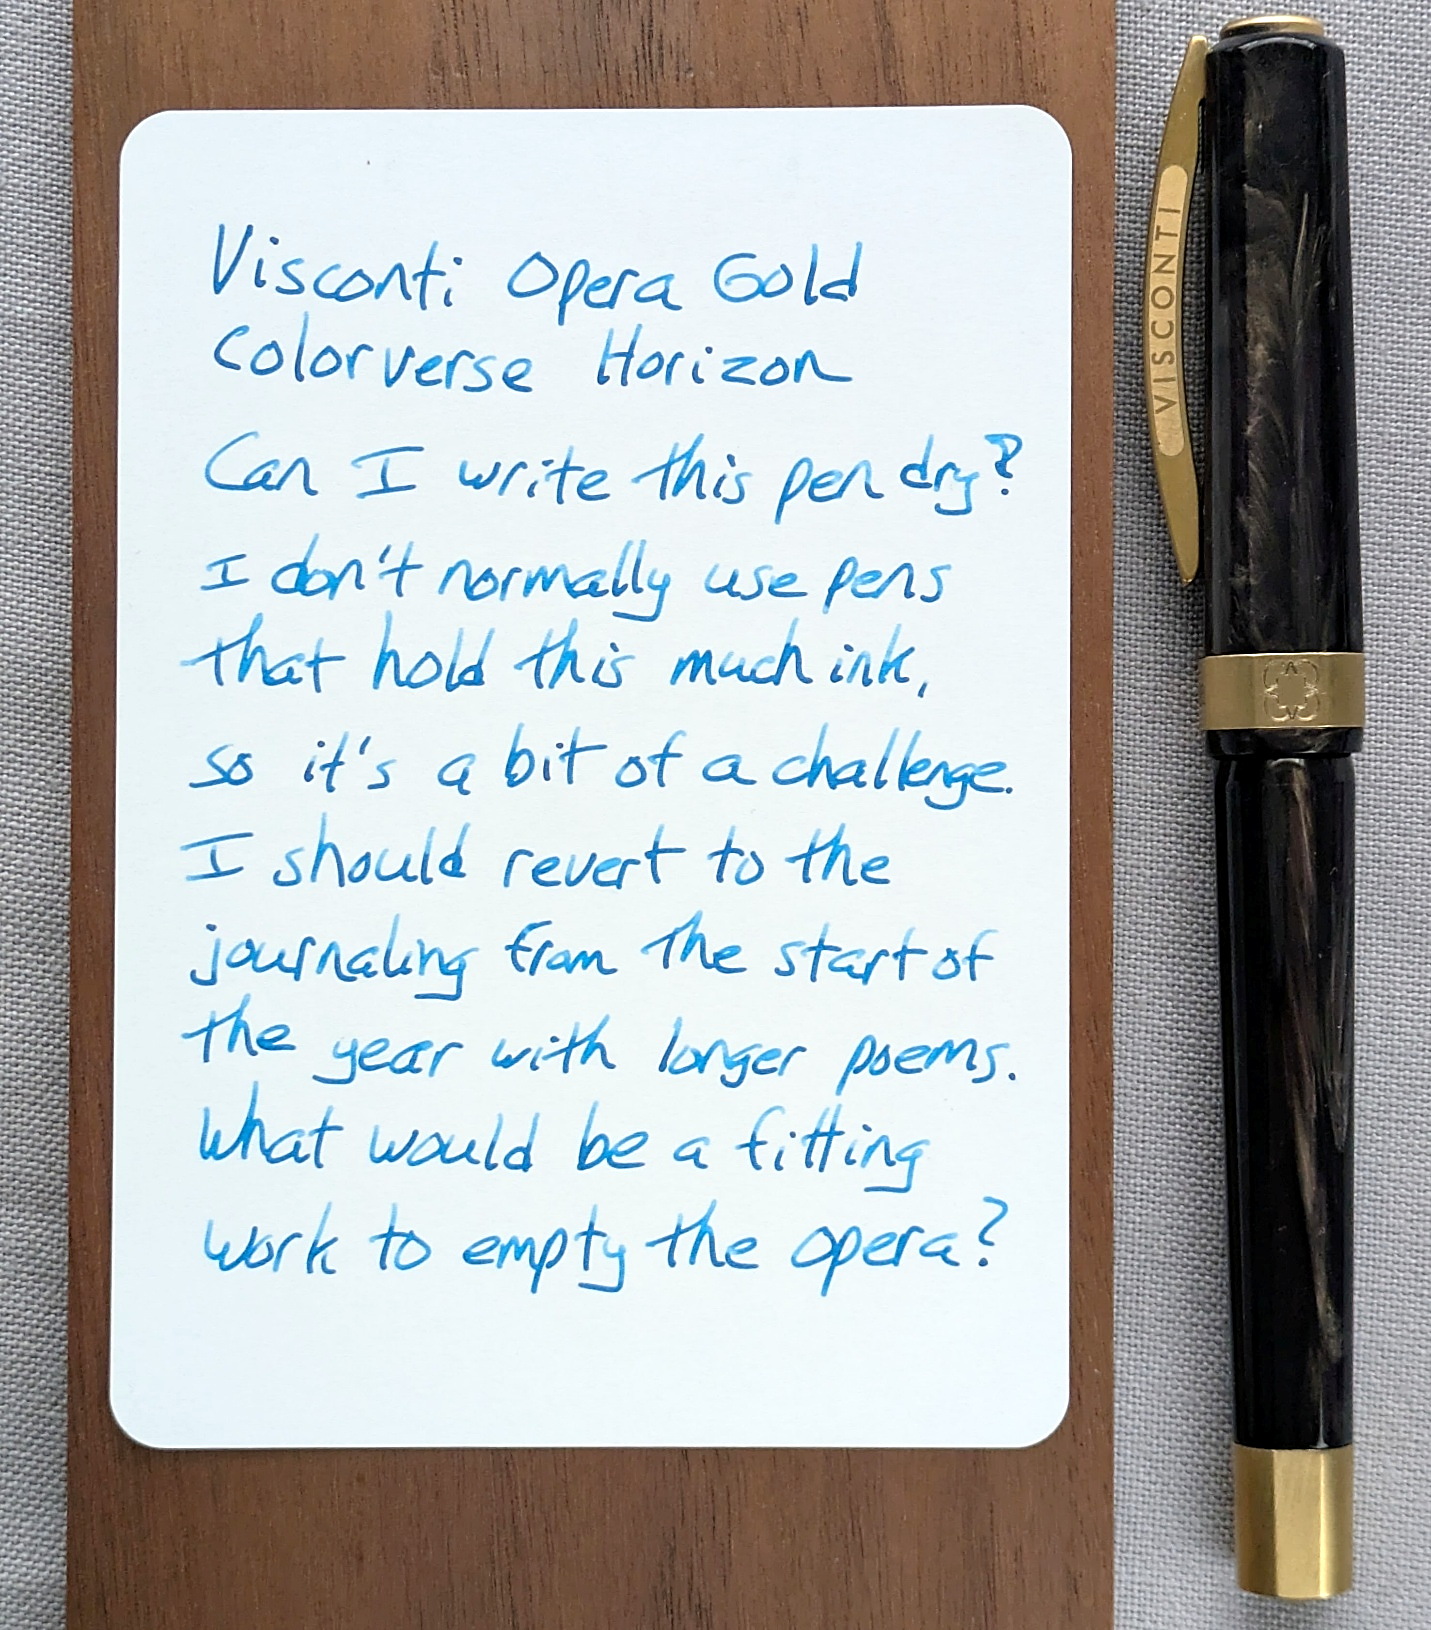 Visconti Opera Gold
Colorverse Horizon
Can I write this pen dry?
I don't normally use pens
that hold this much ink,
so it's a bit of a challenge.
I should revert to the
journaling from the start of
the year with longer poems.
What would be a fitting
work to empty the opera?
VISCONTI